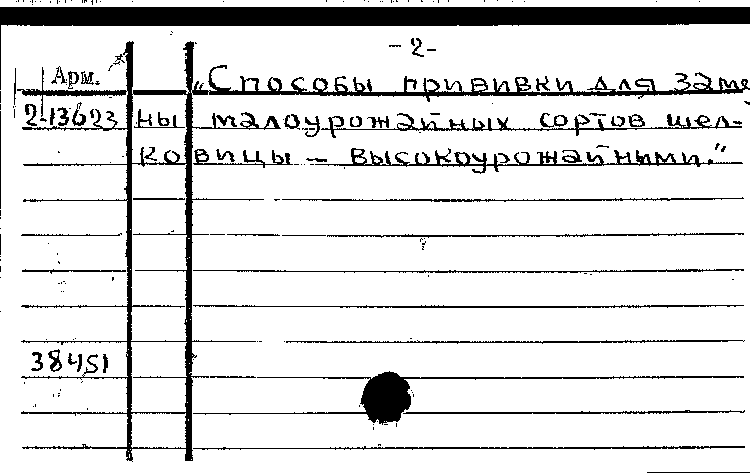 -2-
Арм.
„Способы прививки для заме
2-13623 ны малоурожайных сортов шел-
ковицы – высокоурожайными."
38451